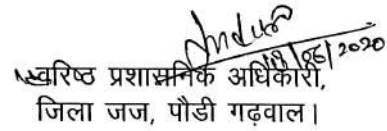 19/06/2020
वरिष्ठ प्रशासनिक अधिकारी,
जिला जज, पौडी गढ़वाल।